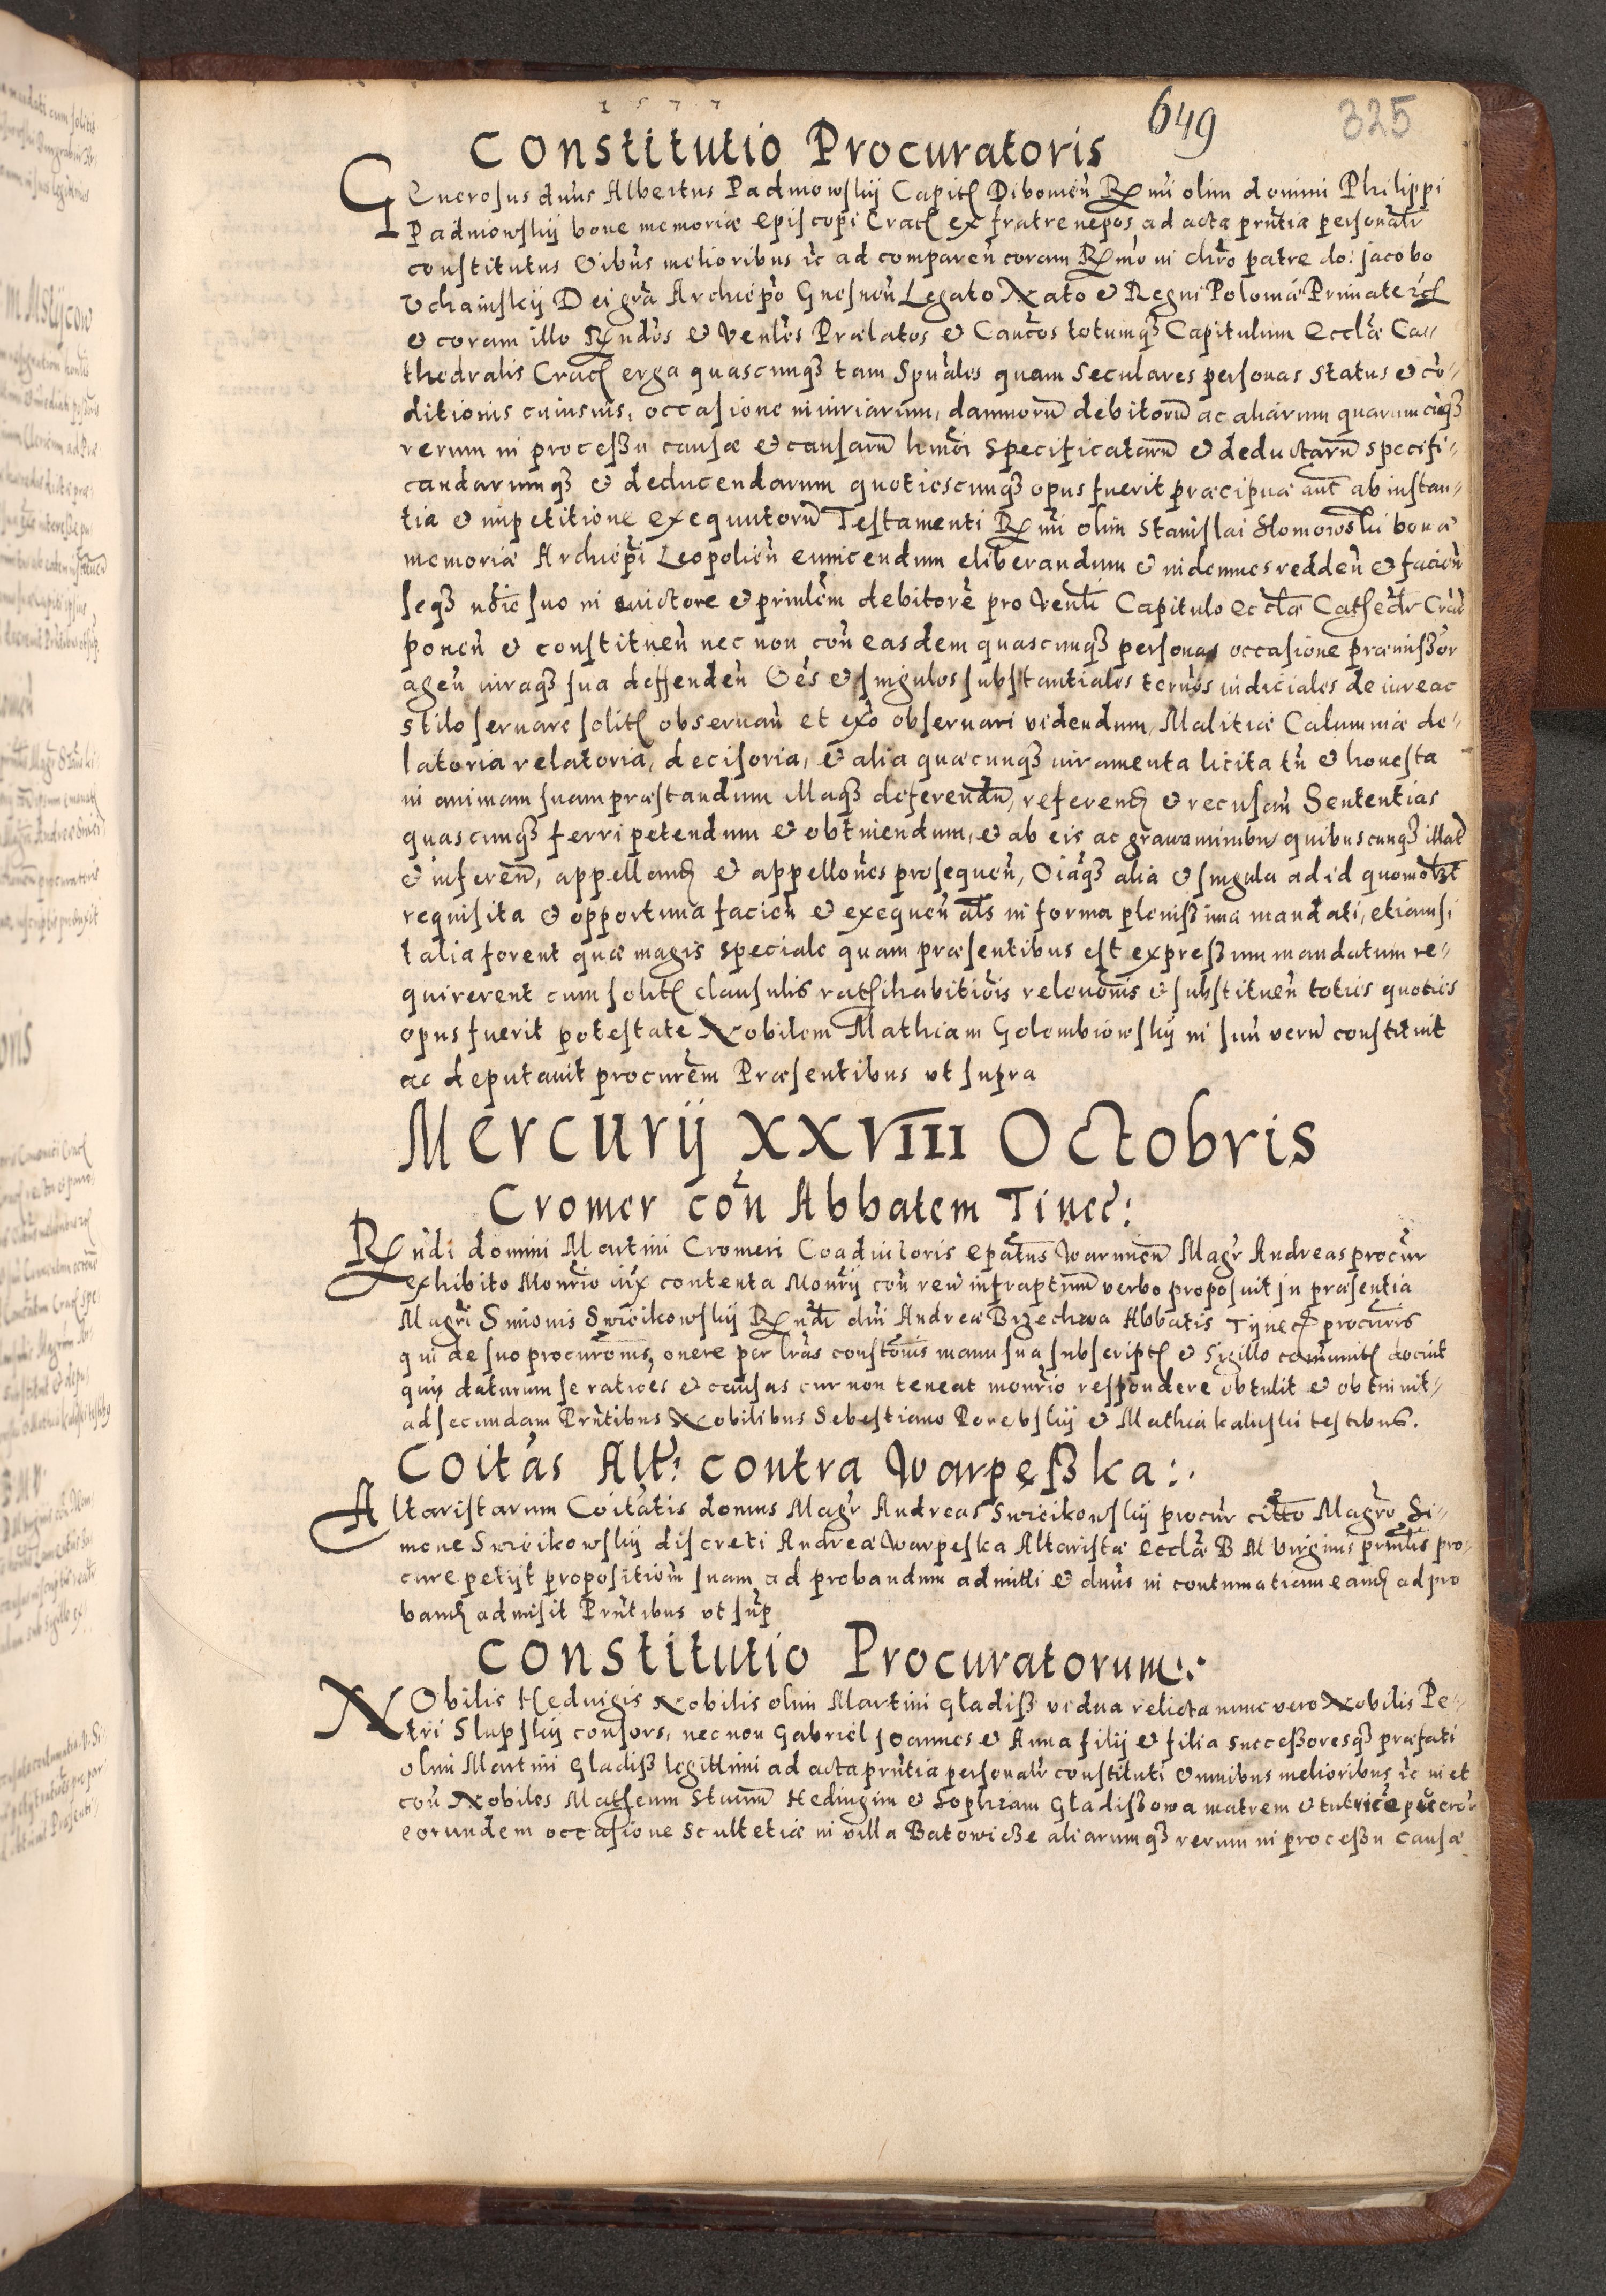 1577
649
325
Constitutio Procuratoris
GEnerosus dnus Albertus Padniowskij Capit Dibowien Rmi olim domini Philippi
Padniowskij bone memoriæ episcopi Crac ex fratre nepos, ad acta prntia personalr
constitutus Oibus melioribus ic ad comparen coram Rmo in chro patre do: jacobo
Vchainskij Dei gra Archiepo Gnesnen Legato Nato & Regni Poloniæ Primate
& coram illo Rndos & Venles Prælatos & Cancos totumqȝ Capitulum Ecclæ Ca-
thedralis Crac erga quascunqȝ tam Spuales quam Seculares personas status & co-
ditionis cuiusuis, occasione iniuriarum, damnoru debitoru ac aliarum quarumcuqȝ
rerum in processu causæ & causaru hmoi specificataru & deductaru specifi-
candarumqȝ & deducendarum quotiescunqȝ opus fuerit præcipuæ aut ab instan-
tia & impetitione exequutoru Testamenti Rmi olim Stanislai Slomowski bonæ
memoriæ Archiepi Leopolien euincendum eliberandum & indemnes redden & facien
seqȝ noie suo in euictore & prinlem debitore pro Venli Capitulo ecclæ Cathedr Crac
ponen & constituen nec non con easdem quascunqȝ personas occasione præmissor
agen iuraqȝ sua deffenden Oes & singulos substantiales ternos iudiciales de iure ac
stilo seruare solit obseruan et exo obseruari videndum, Malitiæ Calumniæ de-
latoria relatoria, decisoria, & alia quæcunqȝ iuramenta licita tn & honesta
in animam suam præstandum illaqȝ deferendu, referend & recusan Sententias
quascunqȝ ferri petendum & obtniendum, & ab eis ac grawaminibus quibuscunqȝ illat
& inferen, appelland & appellones prosequen, Oiaqȝ alia & singula ad id quomolȝt
requisita & opportuna facien & exequen als in forma plenissima mandati, etiamsi
talia forent quæ magis speciale quam præsentibus est expressum mandatum re-
quirerent cum solit clausulis rathihabitiois releuonis & substituen toties quoties
opus fuerit potestate Nobilem Mathiam Golembiowskij in suu veru constituit
ac deputauit procurem Præsentibus vt supra
Mercurij XXVIII Octobris
Cromer con Abbatem Tinec:
Rndi domini Martini Cromeri Coadiutoris epatus Warmien Magr Andreas procur
exhibito Monrio iux contenta Monrij con reu infraptum verbo proposuit jn præsentia
Magri Simonis Swicikowskij Rndi dni Andreæ Brzechwa Abbatis Tijnec procuris
qui de suo procuronis, onere per lras constonis manu sua subscript & Sigillo comunit docuit
quis daturum se ratioes & causas cur non teneat monrio respondere obtulit & obtinuit-
ad secundam Prntibus Nobilibus Sebestiano Porebskij & Mathia kaluski testibus.
Coitas Alt: contra Warpeßka:.
Altaristarum Coitatis domus Magr Andreas Swicikowskij procur citto Magro Si-
mone Swicikowskij discreti Andreæ Warpeska Altaristæ ecclæ B M Virginis prinlis pro-
cure petijt propositioni suam ad probandum admitti & dnus in contumatiam eand ad pro
band admisit Prntibus vt sup
Constitutio Procuratorum:.
NObilis Heduigis Nobilis olim Martini Gładiß vidua relicta nunc vero Nobilis Pe-
tri Slupskij consors, nec non Gabriel Joannes & Anna filij & filia successoresqȝ præfati
olim Martini Gladiß legittimi ad acta prntia personalr constituti Omnibus melioribus ic in et
con Nobiles Matheum Heduigim & Sophiam Gladißowa matrem & tutrice
eorundem occasione Scultetiæ in villa Batowicße aliarumqȝ rerum in processu causæ